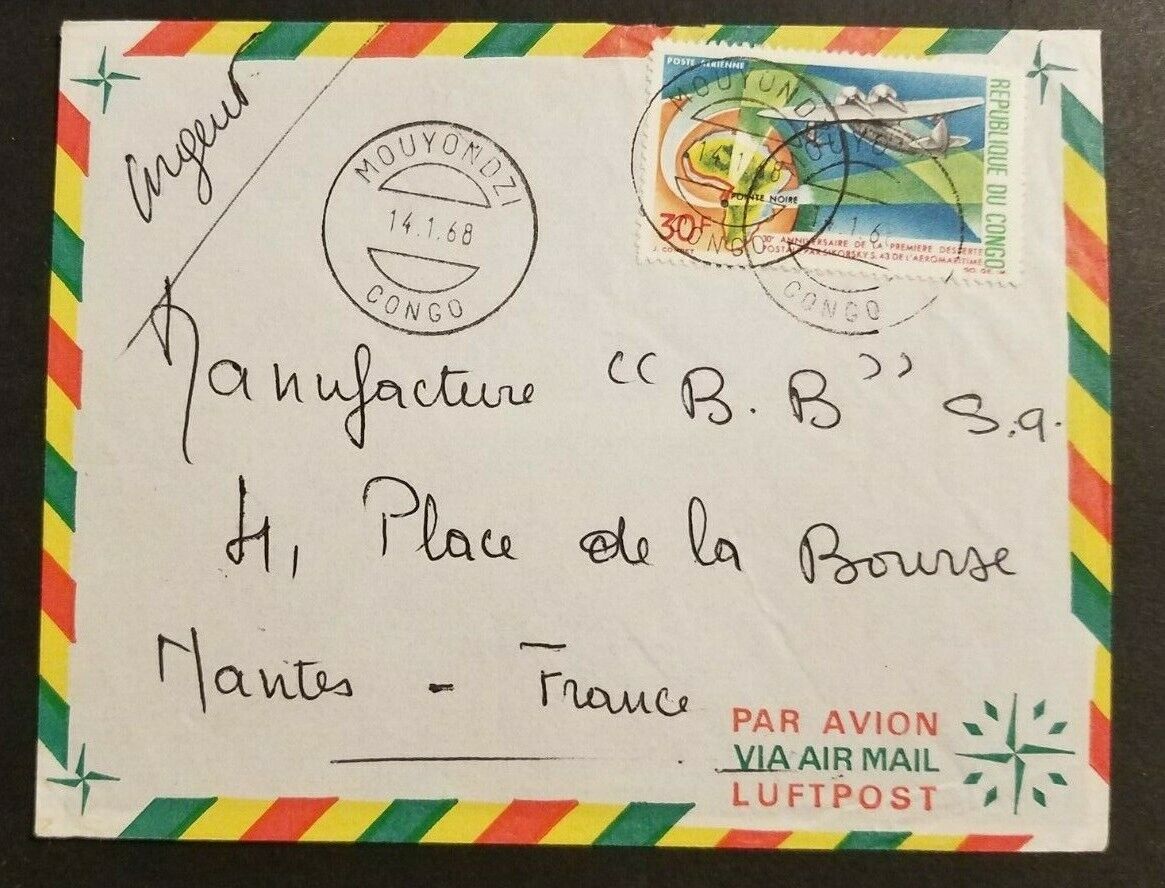 urgent
MOUYONDZI
14.1.68
CONGO
POSTE AERIENNE
REPUBLIQUE DU CONGO
MOUYONDZI
14.1.68
CONGO
MOUYO
14.1.6
CONGO
POINTE NOIRE
30F
30e ANNIVERSAIRE DE LA PREMIERE DESSERTE
POSTALE PAR SIKORSKY S.43 DE L'AEROMARITIME
Manufacture "B.B" S.a.
4, Place de la Bourse
Nantes - France
PAR AVION
VIA AIR MAIL
LUFTPOST